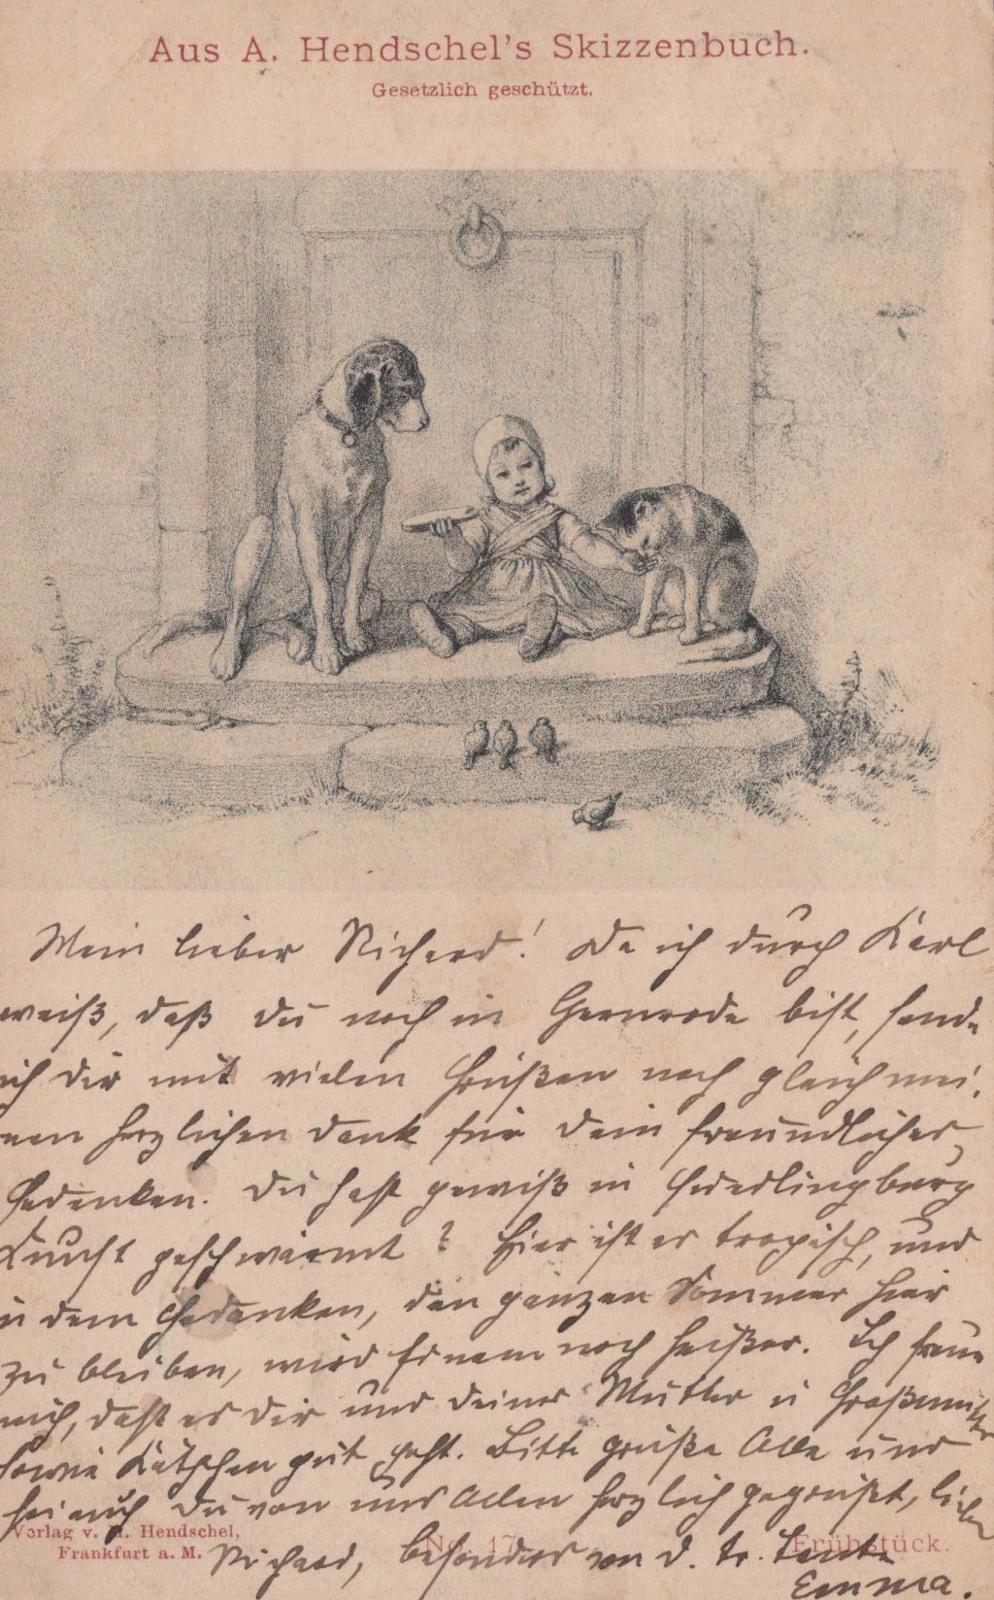 Aus A. Hendschel's Skizzenbuch.
Gesetzlich geschützt.
Mein lieber Richard! Da ich durch Karl
weiß, daß du noch in Gernrode bist, sende
ich dir mit vielen Grüßen noch gleich mei-
nen herzlichen Dank für dein freundliches
Gedenken. Du hast gewiß in
geschwärmt? Hier ist es tropisch, und
in dem Gedanken, den ganzen Sommer hier
zu bleiben, wird Einem noch heißer. Ich freue
mich, daß es dir und deiner Mutter u Großmutter
sowie Kätchen gut geht. Bitte grüße Alle und
sei auch du von uns Allen herzlich gegrüßt, lieber
Verlag v. Hendschel,
Frankfurt a. M.
No. 17.
Frühstück.
Richard, besonders von d. tr. Tante
Emma.